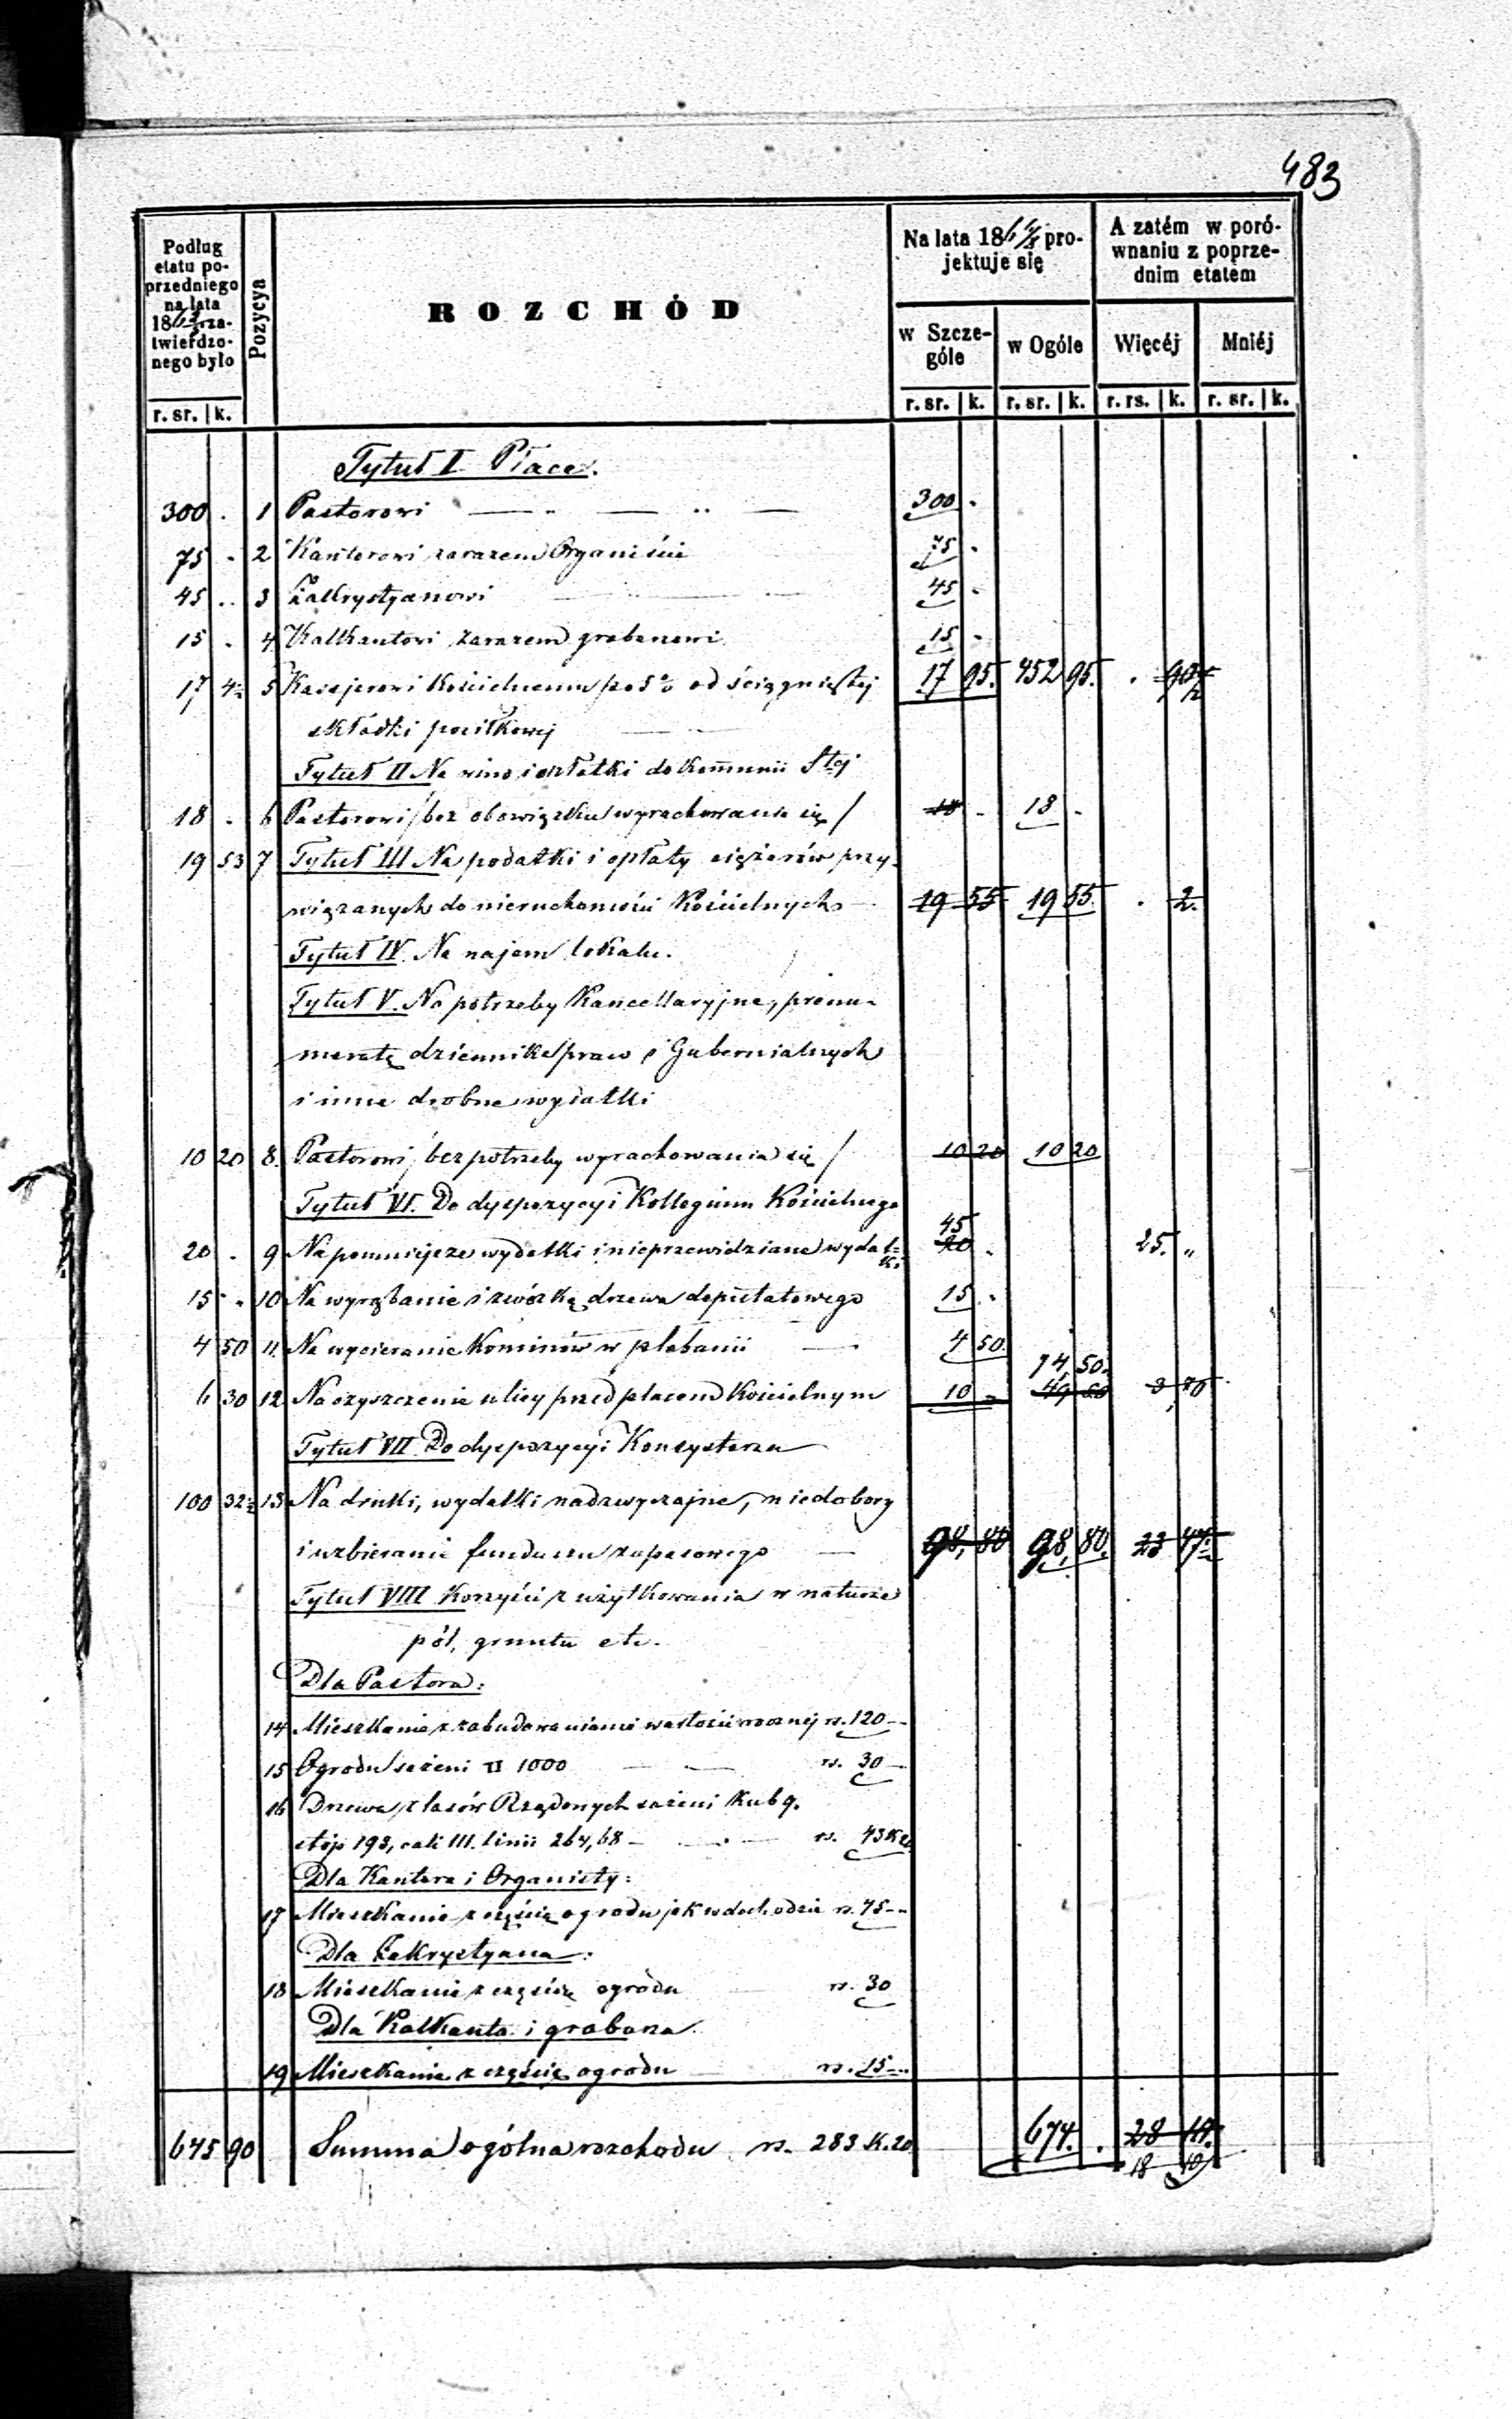 483
Podług etatu poprzedniego na lata 18 zatwierdzonego było
Pozycya
ROZCHÓD
Na lata 18 projektuje się
A zatém w porównaniu z poprzednim etatem
w Szczególe
w Ogóle
Więcéj
Mniéj
r. sr. k.
r. sr. k. r. sr. k. r. rs. k. r. sr. k.
Tytuł I Płace.
300 . 1 Pastorowi 300 .
75 . 2 Kantorowi zarazem Organiście 75 .
45 .. 3 Zakrystyanowi 45 .
15 . 4 Kalkantowi zarazem grabarzowi 15 .
17 5 Kassyerowi Kościelnemu po 5% od ściągniętej 17 95. 452 95. .
składki posiłkowej
Tytuł II Na wino i opłatki do Kommunii Stej
18 . 6 Pastorowi /bez obowiązku wyrachowania się/ 18 . 18 .
19 53 7 Tytuł III Na podatki i opłaty ciężarów przy-
wiązanych do nieruchomości Kościelnych 19 55 19 55. . 2.
Tytuł IV. Na najem lokalu.
Tytuł V. Na potrzeby Kancellaryjne, prenu-
meratę dziennika praw i Gubernialnych
i inne drobne wydatki
10 20 8. Pastorowi /bez potrzeby wyrachowania się/ 10 20 10 20
Tytuł VI. Do dyspozycyi Kollegium Kościelnego
45
20 . 9 Na pomniejsze wydatki i nieprzewidziane wydatki 20 . 25. "
15 . 10 Na wyrąbanie i zwózkę drzewa deputatowego 15 .
4 50 11. Na wycieranie Kominów w plebanii 4 50
74, 50.
6 30 12 Na czyszczenie ulicy przed placem Kościelnym 10 - 49 50 3 70
Tytuł VII Do dyspozycyi Konsystorza
100 32½ 13 Na druki, wydatki nadzwyczajne, niedobory
i uzbieranie funduszu zapasowego 98, 80 98, 80. 23 47.
Tytuł VIII Korzyści z użytkowania w naturze
pól, gruntu etc.
Dla Pastora:
14 Mieszkanie z zabudowaniami wartości rocznej rs. 120 -
15 Ogrodu sążeni □ 1000 rs. 30 -
16 Drzewa z lasów Rządowych sążeni kub 9.
stóp 193, cali III. linii 264,68 - rs. 43 K 20
Dla Kantora i Organisty:
17 Mieszkanie z częścią ogrodu jak w dochodzie rs. 45 -
Dla Zakrystyana:
18 Mieszkanie z częścią ogrodu rs. 30
Dla Kalkanta i grabarza.
19 Mieszkanie z częścią ogrodu rs. 15 -
675 90 Summa ogólna rozchodu rs. 283 K. 20 674. . 28 19.
18 10